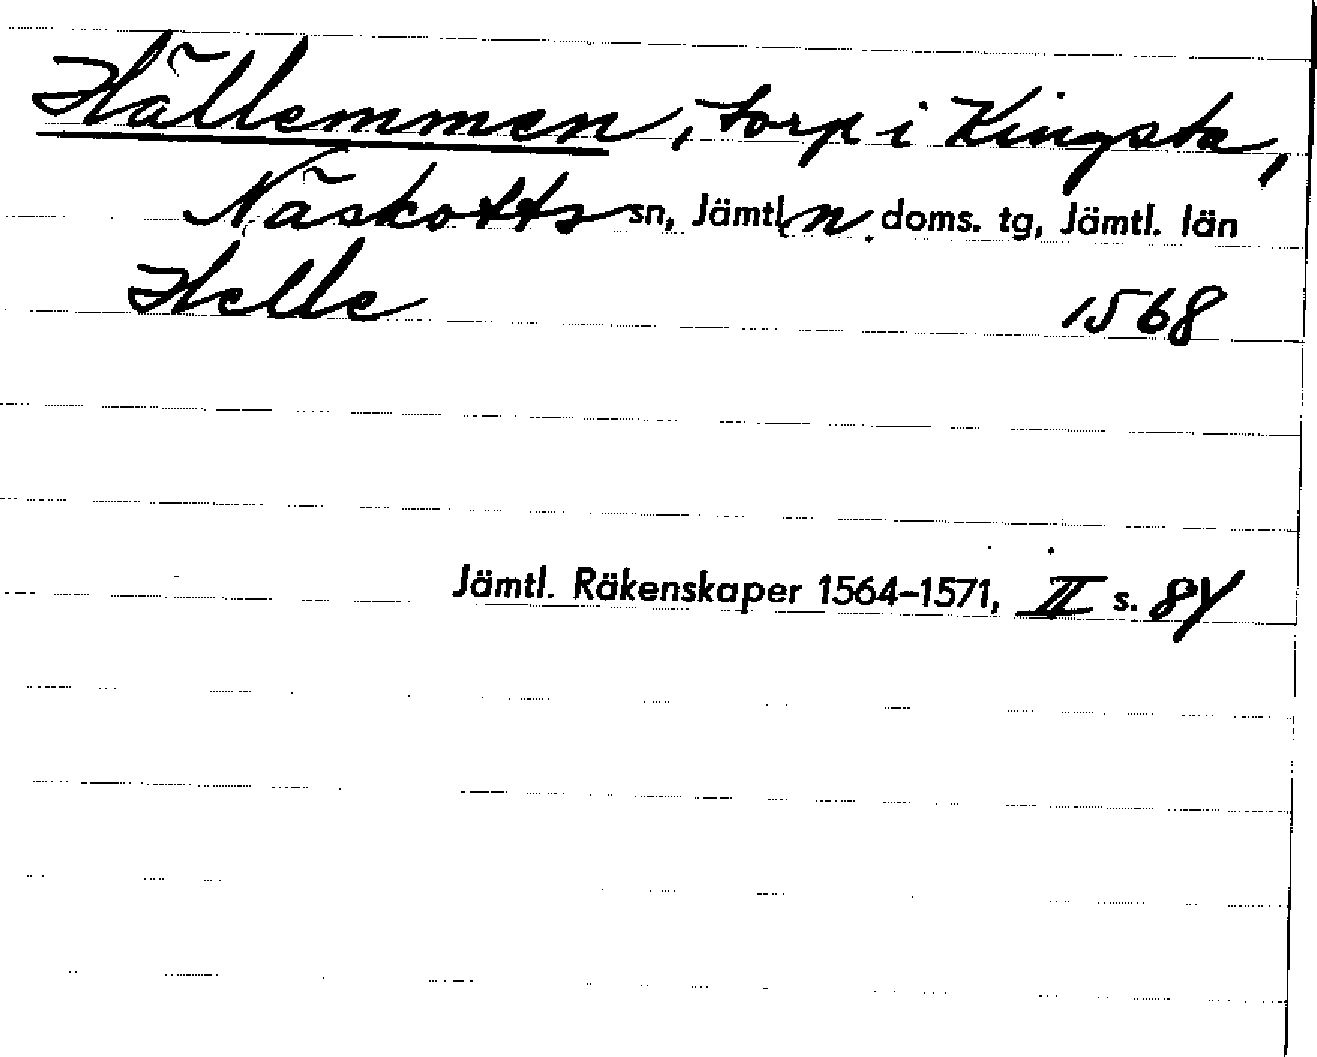 Hällemmen, torp i Kingsta,
Näskotts sn, Jämtl. n. doms. tg, Jämtl. län
Helle 1568
Jämtl. Räkenskaper 1564–1571, II s. 84